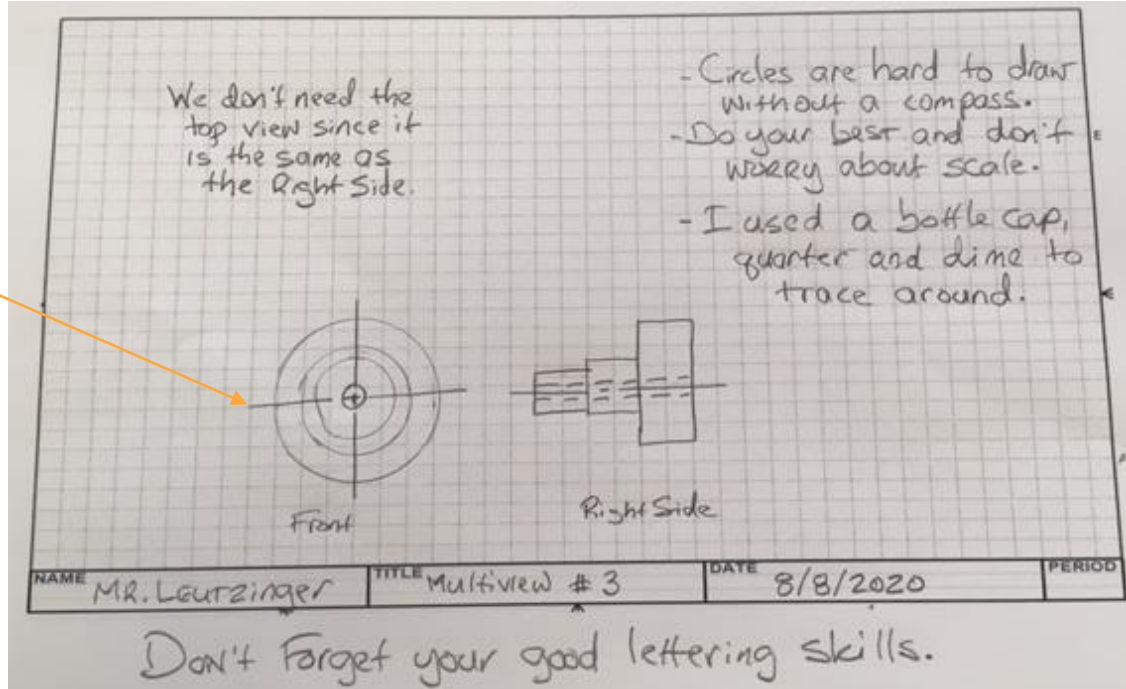 We don't need the
top view since it
is the same as
the Right Side.
- Circles are hard to draw
without a compass.
- Do your best and don't
worry about scale.
- I used a bottle cap,
quarter and dime to
trace around.
Front
Right Side
NAME MR. Leurzinger
TITLE Multiview # 3
DATE 8/8/2020
PERIOD
Don't Forget your good lettering skills.